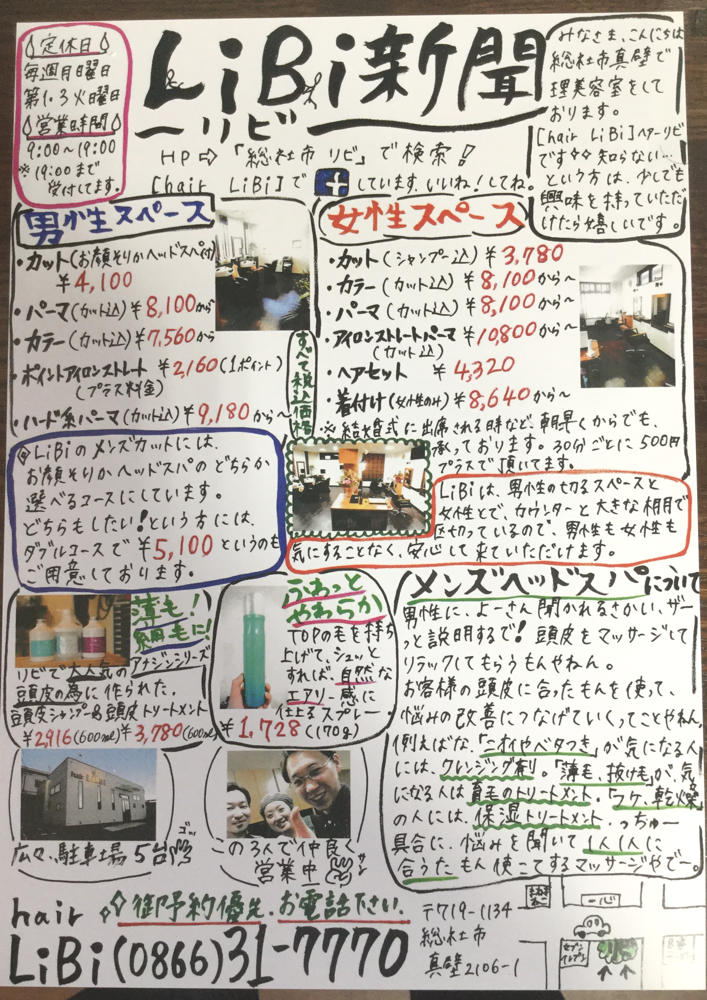 定休日
毎週月曜日
第1.3火曜日
営業時間
9:00〜19:00
※19:00まで
受付してます。
LiBi新聞
ーリビー
HP⇨「総社市 リビ」で検索!
[hair LiBi]で
しています。いいね!してね。
みなさま、こんにちは
総社市真壁で
理美容室をして
おります。
[hair LiBi]ヘアーリビ
です 知らない…
という方は、少しでも
興味を持っていただ
けたら嬉しいです。
男性スペース
・カット(お顔そりかヘッドスパ付)
¥4,100
・パーマ(カット込)¥8,100から
・カラー(カット込)¥7,560から
・ポイントアイロンストレート ¥2,160(1ポイント)
(プラス料金)
・ハード系パーマ(カット込)¥9,180から〜
すべて税込価格
女性スペース
・カット(シャンプー込)¥3,780
・カラー(カット込)¥8,100から〜
・パーマ(カット込)¥8,100から〜
・アイロンストレートパーマ ¥10,800から〜
(カット込)
・ヘアセット ¥4,320
・着付け(女性のみ)¥8,640から〜
※結婚式に出席される時など、朝早くからでも、
承っております。30分ごとに500円
プラスで頂いてます。
◎LiBiのメンズカットには、
お顔そりかヘッドスパのどちらか
選べるコースにしています。
どちらもしたい!という方には、
ダブルコースで¥5,100というのも
ご用意しております。
LiBiは、男性の切るスペースと
女性とで、カウンターと大きな棚で
区切っているので、男性も女性も
気にすることなく、安心して来ていただけます。
薄毛!
細毛に!
リビで大人気の
アナジンシリーズ
頭皮の為に作られた、
頭皮シャンプー&頭皮トリートメント
¥2916(600ml)¥3,780(600ml)
ふわっと
やわらか
TOPの毛を持ち
上げて、シュッと
すれば、自然な
エアリー感に
仕上るスプレー
¥1,728(170g)
メンズヘッドスパについて
男性に、よーさん聞かれるさかい、ザー
っと説明するで!頭皮をマッサージして
リラックしてもらうもんやねん。
お客様の頭皮に合ったもんを使って、
悩みの改善につなげていくってことやねん。
例えばな、「ニオイやベタつき」が気になる人
には、クレンジング剤。「薄毛、抜け毛」が、気
になる人は育毛のトリートメント。「フケ、乾燥」
の人には、保湿トリートメント。っちゅー
具合に、悩みを聞いて1人1人に
合うたもん使こてするマッサージやでー。
広々、駐車場5台
この3人で仲良く
営業中
hair
LiBi(0866)31-7770
御予約優先。お電話下さい。
〒719-1134
総社市
真壁2106-1
セブン
イレブン